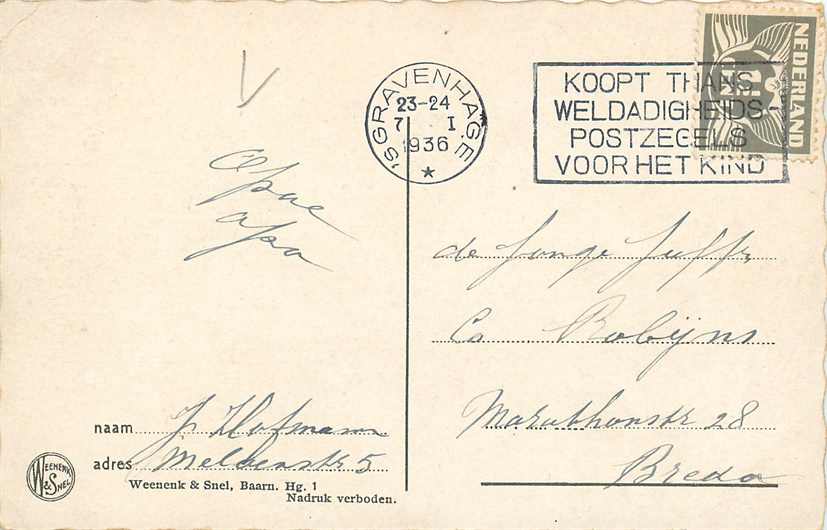 'SGRAVENHAGE
23-24
7 I
1936
KOOPT THANS
WELDADIGHEIDS-
POSTZEGELS
VOOR HET KIND
NEDERLAND
de Jonge Juffr
Co Robijns
Marathonstr 28
Breda
naam Js Hofmann
adres 5
WEENENK & SNEL
Weenenk & Snel, Baarn. Hg. 1
Nadruk verboden.